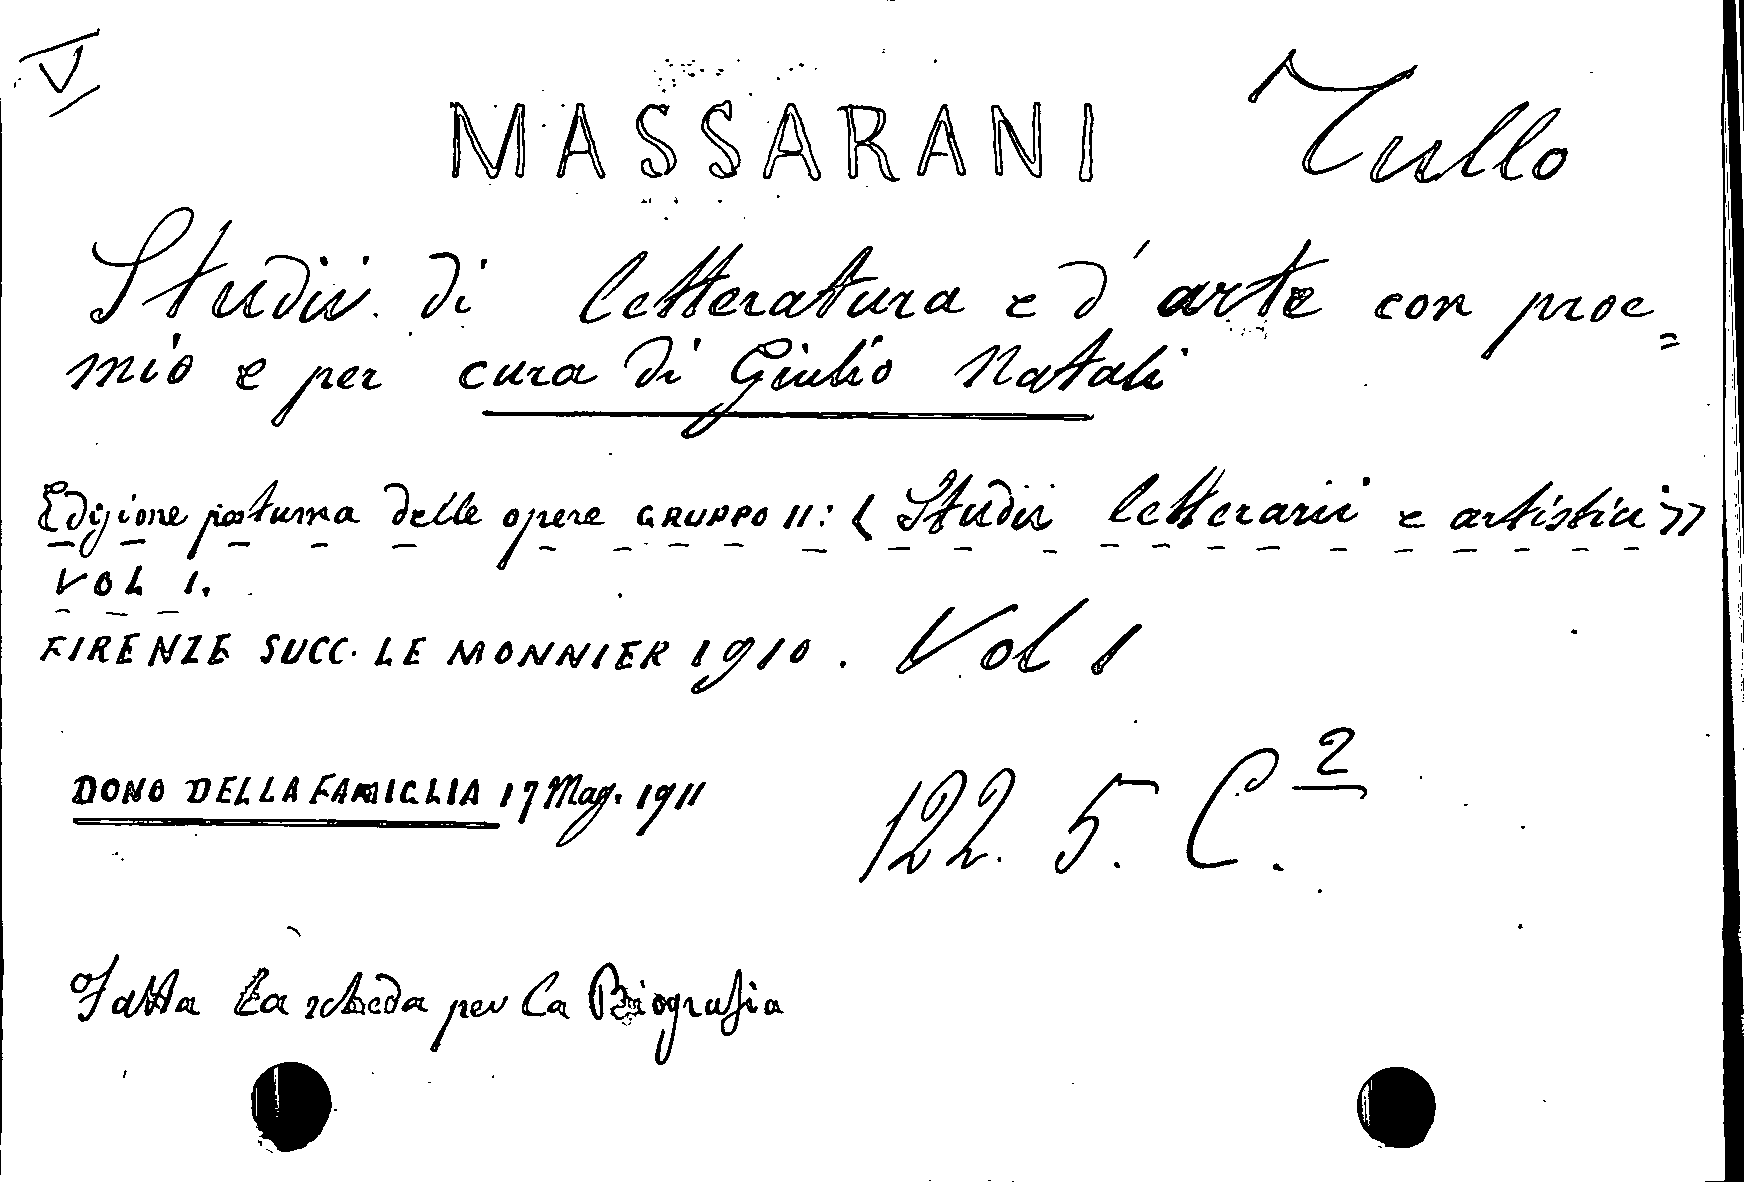 V
MASSARANI Tullo
Studii di letteratura e d'arte con proe=
mio e per cura di Giulio Natali
Edizione postuma delle opere GRUPPO II: « Studii letterarii e artistici »
VOL I.
FIRENZE SUCC. LE MONNIER 1910. Vol 1
DONO DELLA FAMIGLIA 17 Mag. 1911
122. 5. C.2
Fatta la scheda per la Biografia